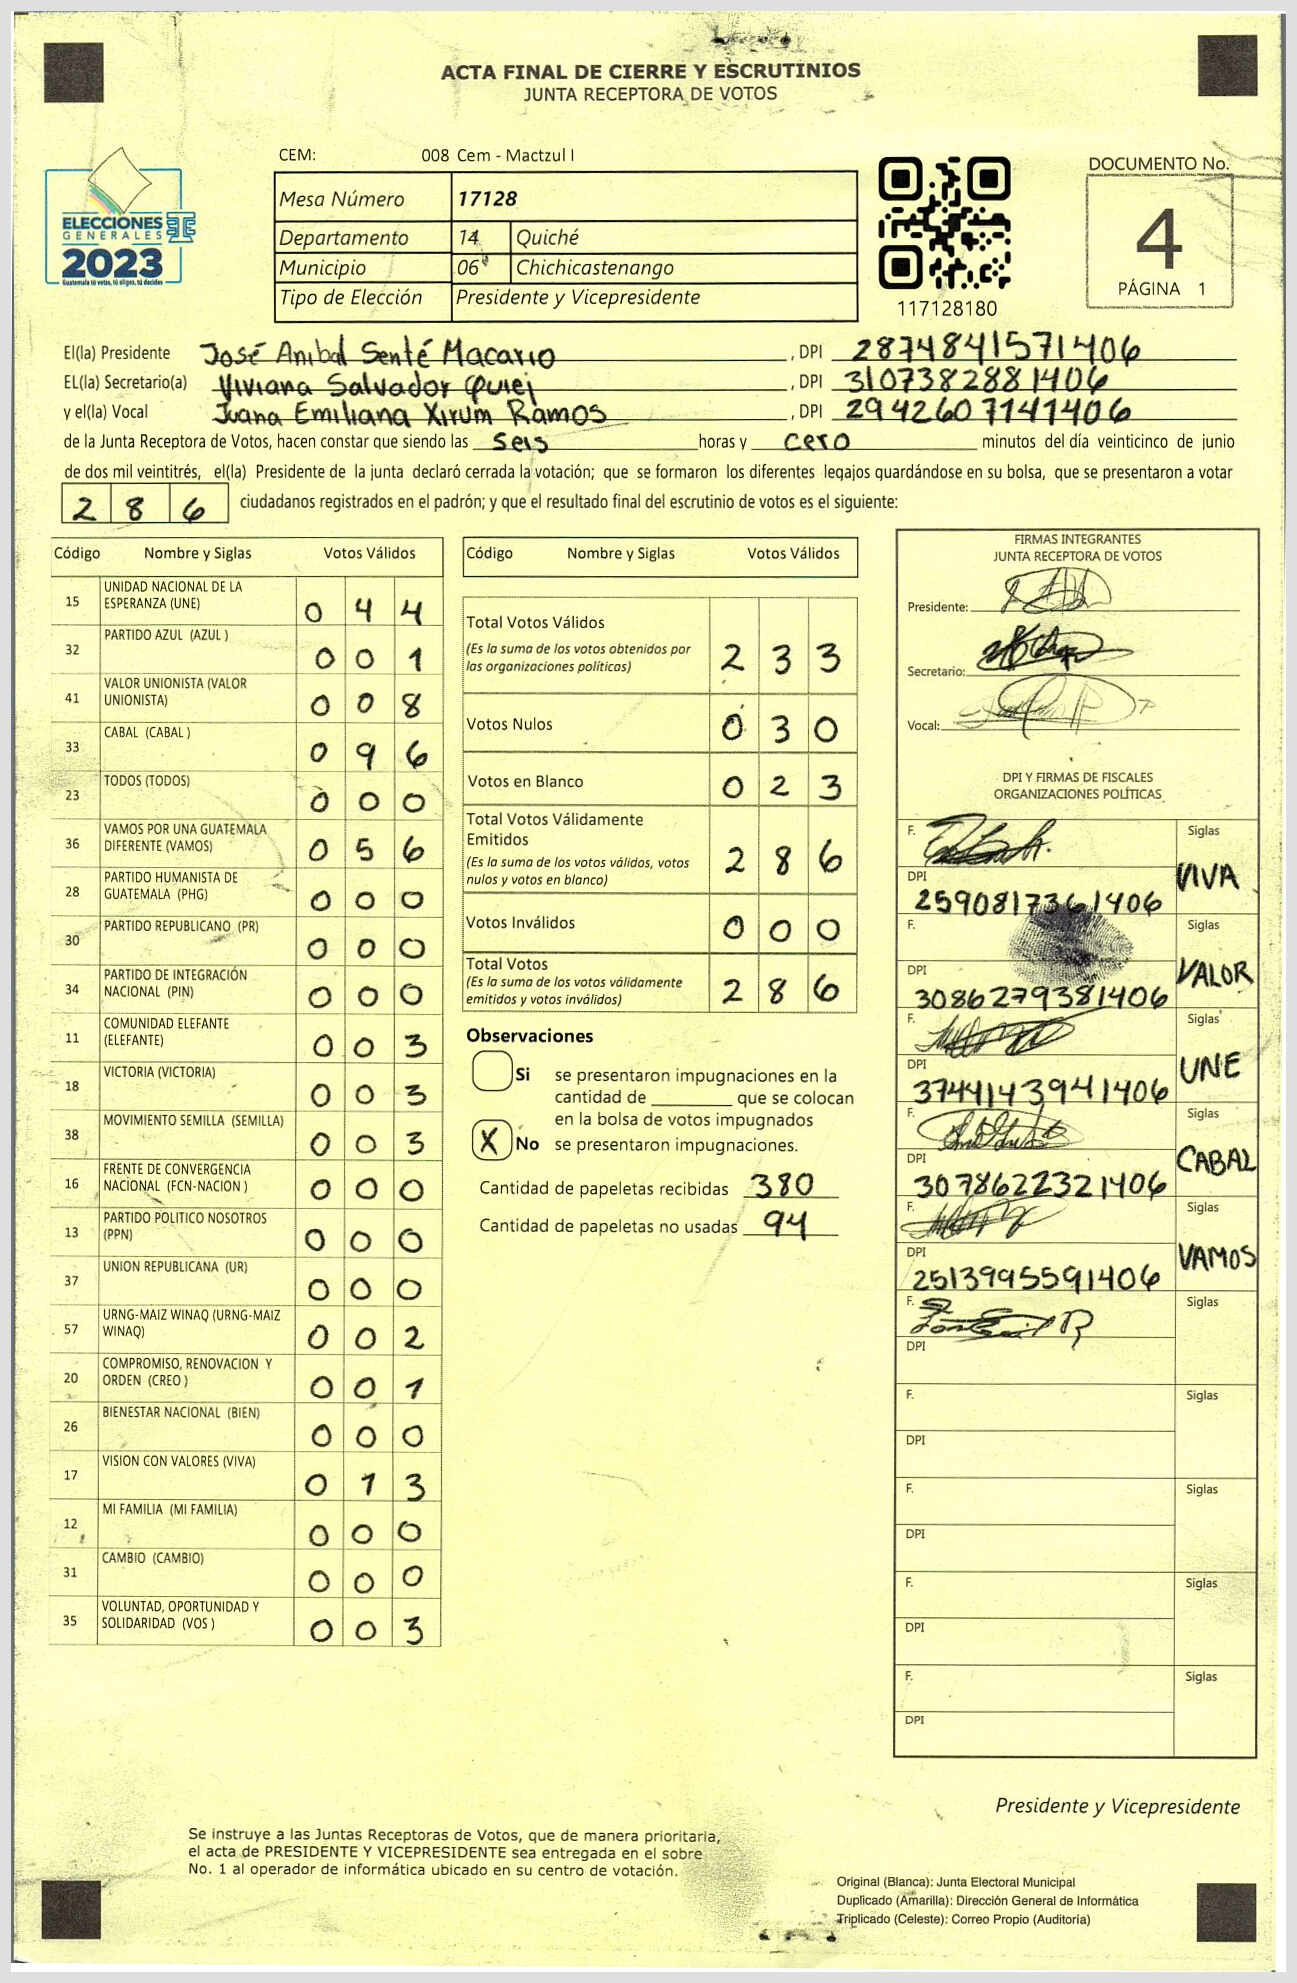 ACTA FINAL DE CIERRE Y ESCRUTINIOS
JUNTA RECEPTORA DE VOTOS
CEM: 008 Cem - Mactzul I
ELECCIONES
GENERALES
2023
Guatemala tú votas, tú eliges, tú decides
Mesa Número 17128
Departamento 14 Quiché
Municipio 06 Chichicastenango
Tipo de Elección Presidente y Vicepresidente
117128180
DOCUMENTO No.
4
PÁGINA 1
El(la) Presidente José Aníbal Senté Macario, DPI 2874841571406
EL(la) Secretario(a) Viviana Salvador Quiej, DPI 3107382881406
y el(la) Vocal Juana Emiliana Xirum Ramos, DPI 2942607141406
de la Junta Receptora de Votos, hacen constar que siendo las seis horas y cero minutos del día veinticinco de junio
de dos mil veintitrés, el(la) Presidente de la junta declaró cerrada la votación; que se formaron los diferentes legajos guardándose en su bolsa, que se presentaron a votar
286 ciudadanos registrados en el padrón; y que el resultado final del escrutinio de votos es el siguiente:
Código Nombre y Siglas Votos Válidos
15 UNIDAD NACIONAL DE LA ESPERANZA (UNE) 044
32 PARTIDO AZUL (AZUL ) 001
41 VALOR UNIONISTA (VALOR UNIONISTA) 008
33 CABAL (CABAL ) 096
23 TODOS (TODOS) 000
36 VAMOS POR UNA GUATEMALA DIFERENTE (VAMOS) 056
28 PARTIDO HUMANISTA DE GUATEMALA (PHG) 000
30 PARTIDO REPUBLICANO (PR) 000
34 PARTIDO DE INTEGRACIÓN NACIONAL (PIN) 000
11 COMUNIDAD ELEFANTE (ELEFANTE) 003
18 VICTORIA (VICTORIA) 003
38 MOVIMIENTO SEMILLA (SEMILLA) 003
16 FRENTE DE CONVERGENCIA NACIONAL (FCN-NACION ) 000
13 PARTIDO POLITICO NOSOTROS (PPN) 000
37 UNION REPUBLICANA (UR) 000
57 URNG-MAIZ WINAQ (URNG-MAIZ WINAQ) 002
20 COMPROMISO, RENOVACION Y ORDEN (CREO ) 001
26 BIENESTAR NACIONAL (BIEN) 000
17 VISION CON VALORES (VIVA) 013
12 MI FAMILIA (MI FAMILIA) 000
31 CAMBIO (CAMBIO) 000
35 VOLUNTAD, OPORTUNIDAD Y SOLIDARIDAD (VOS ) 003
Código Nombre y Siglas Votos Válidos
Total Votos Válidos 233
(Es la suma de los votos obtenidos por
las organizaciones políticas)
Votos Nulos 030
Votos en Blanco 023
Total Votos Válidamente
Emitidos 286
(Es la suma de los votos válidos, votos
nulos y votos en blanco)
Votos Inválidos 000
Total Votos 286
(Es la suma de los votos válidamente
emitidos y votos inválidos)
Observaciones
Si se presentaron impugnaciones en la
cantidad de ________ que se colocan
en la bolsa de votos impugnados
X No se presentaron impugnaciones.
Cantidad de papeletas recibidas 380
Cantidad de papeletas no usadas 94
FIRMAS INTEGRANTES
JUNTA RECEPTORA DE VOTOS
Presidente:
Secretario:
Vocal:
DPI Y FIRMAS DE FISCALES
ORGANIZACIONES POLÍTICAS
F. Siglas
DPI VIVA
2590817361406
F. Siglas
DPI VALOR
3086279381406
F. Siglas
DPI UNE
3744143941406
F. Siglas
DPI CABAL
3078622321406
F. Siglas
DPI VAMOS
2513995591406
F. Siglas
DPI
F. Siglas
DPI
F. Siglas
DPI
F. Siglas
DPI
F. Siglas
DPI
Presidente y Vicepresidente
Se instruye a las Juntas Receptoras de Votos, que de manera prioritaria,
el acta de PRESIDENTE Y VICEPRESIDENTE sea entregada en el sobre
No. 1 al operador de informática ubicado en su centro de votación.
Original (Blanca): Junta Electoral Municipal
Duplicado (Amarilla): Dirección General de Informática
Triplicado (Celeste): Correo Propio (Auditoría)